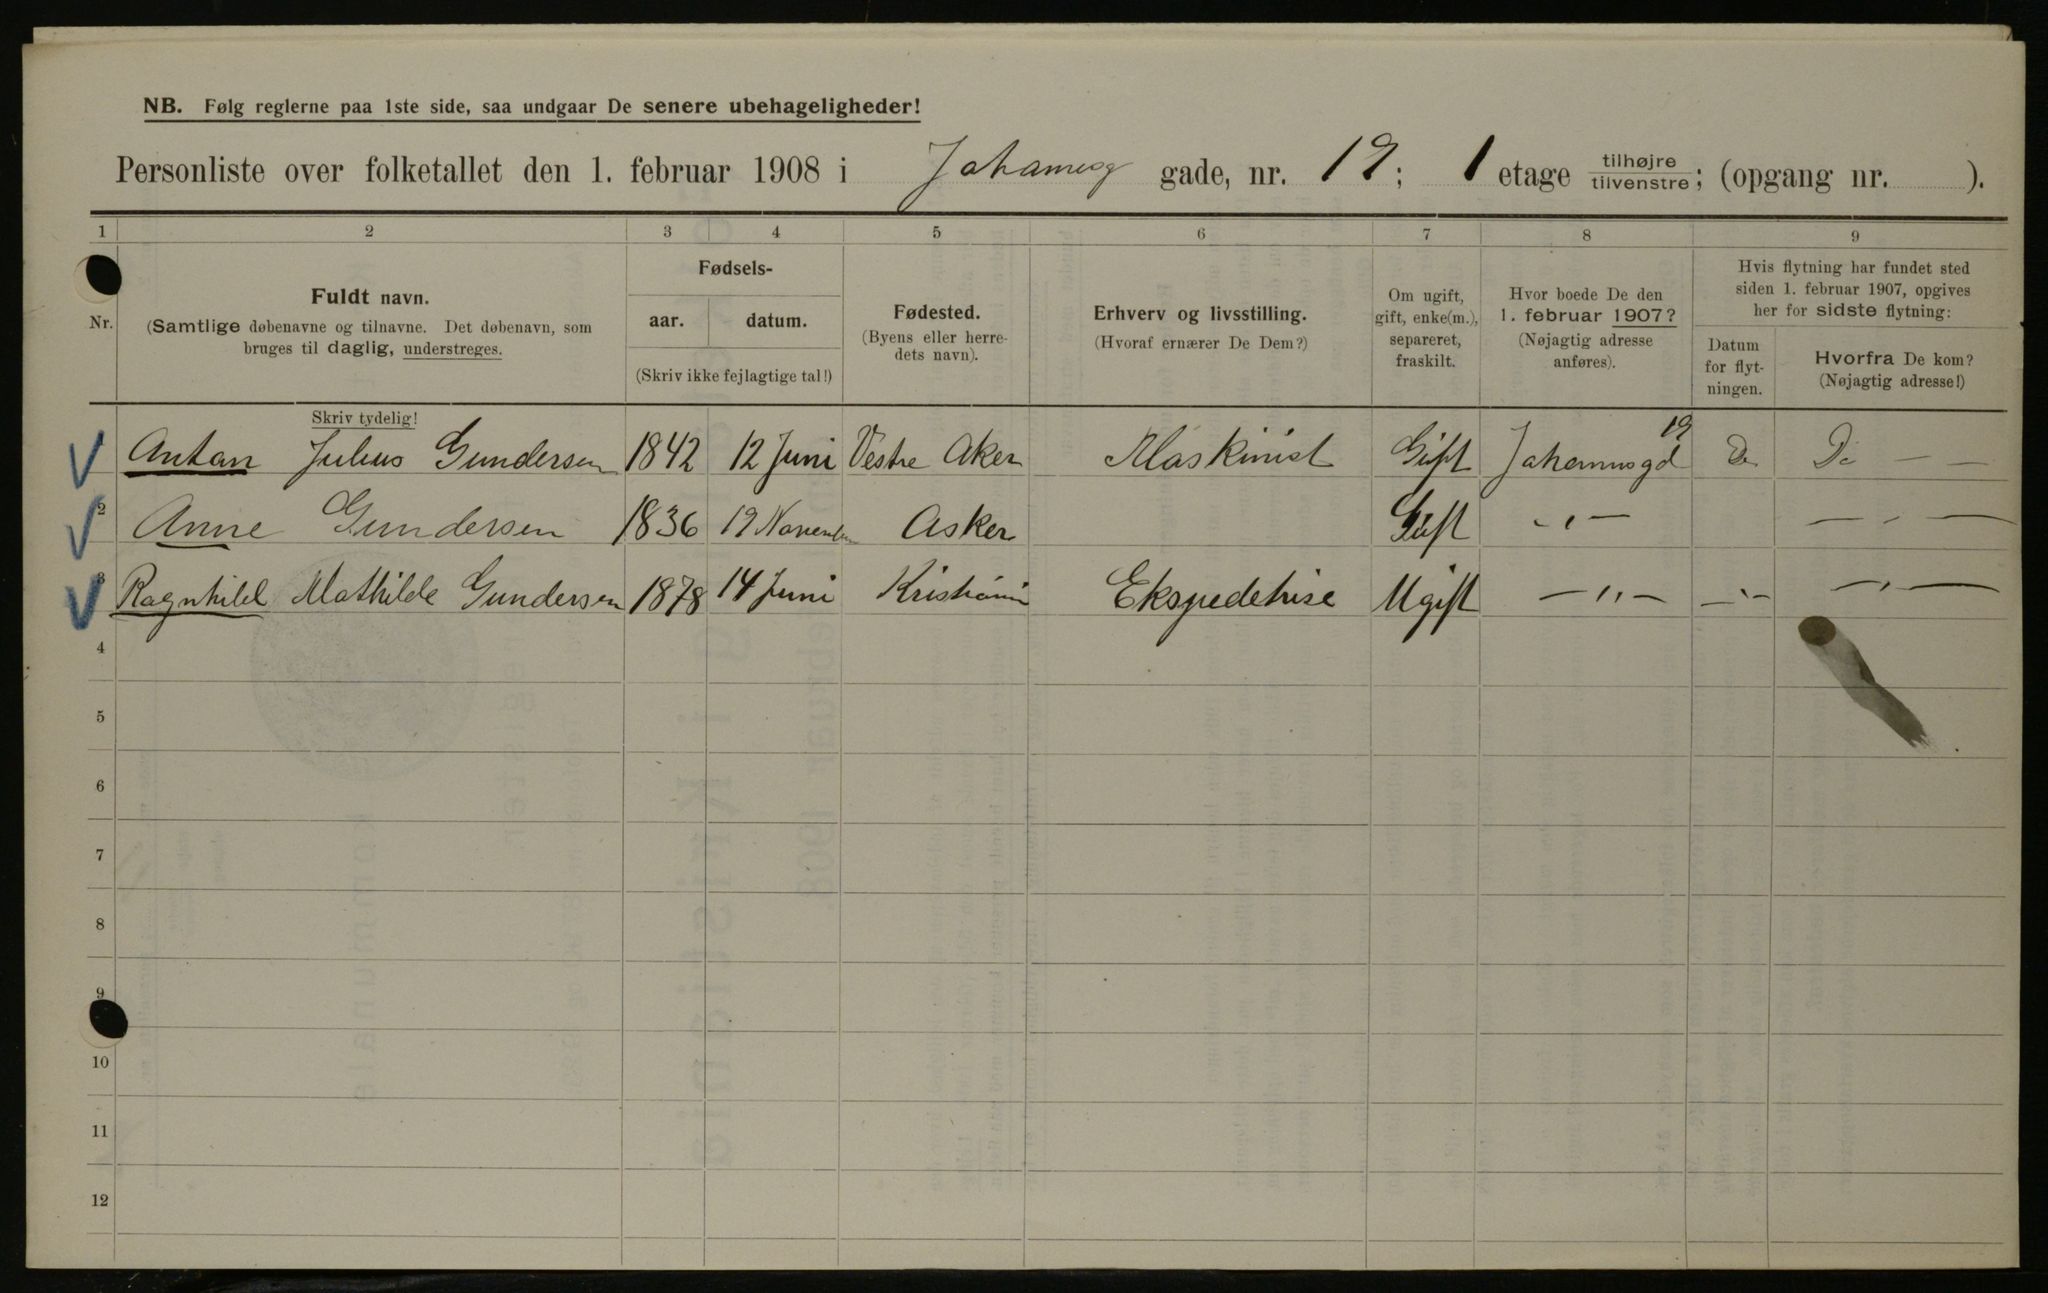 NB. Følg reglerne paa 1ste side, saa undgaar De senere ubehageligheder!
Personliste over folketallet den 1. februar 1908 i Johannesg gade, nr. 19; 1 etage tilhøjre tilvenstre; (opgang nr. ).
1 2 3 4 5 6 7 8 9
Nr.
Fuldt navn.
(Samtlige døbenavne og tilnavne. Det døbenavn, som
bruges til daglig, understreges.
Skriv tydelig!
Fødsels-
aar. datum.
(Skriv ikke fejlagtige tal!)
Fødested.
(Byens eller herre-
dets navn).
Erhverv og livsstilling.
(Hvoraf ernærer De Dem?)
Om ugift,
gift, enke(m.),
separeret,
fraskilt.
Hvor boede De den
1. februar 1907?
(Nøjagtig adresse
anføres).
Hvis flytning har fundet sted
siden 1. februar 1907, opgives
her for sidste flytning:
Datum
for flyt-
ningen.
Hvorfra De kom?
(Nøjagtig adresse!)
Antan Julius Gundersen 1842 12 Juni Vestre Aker Maskinist Gift Johannesgd 19 Do Do — —
2 Anne Gundersen 1836 19 November Asker Gift -„- — „ —
3 Ragnhild Mathilde Gundersen 1878 14 Juni Kristiania Ekspeditrise Ugift —„— —„— —„—
4
5
6
7
8
9
10
11
12